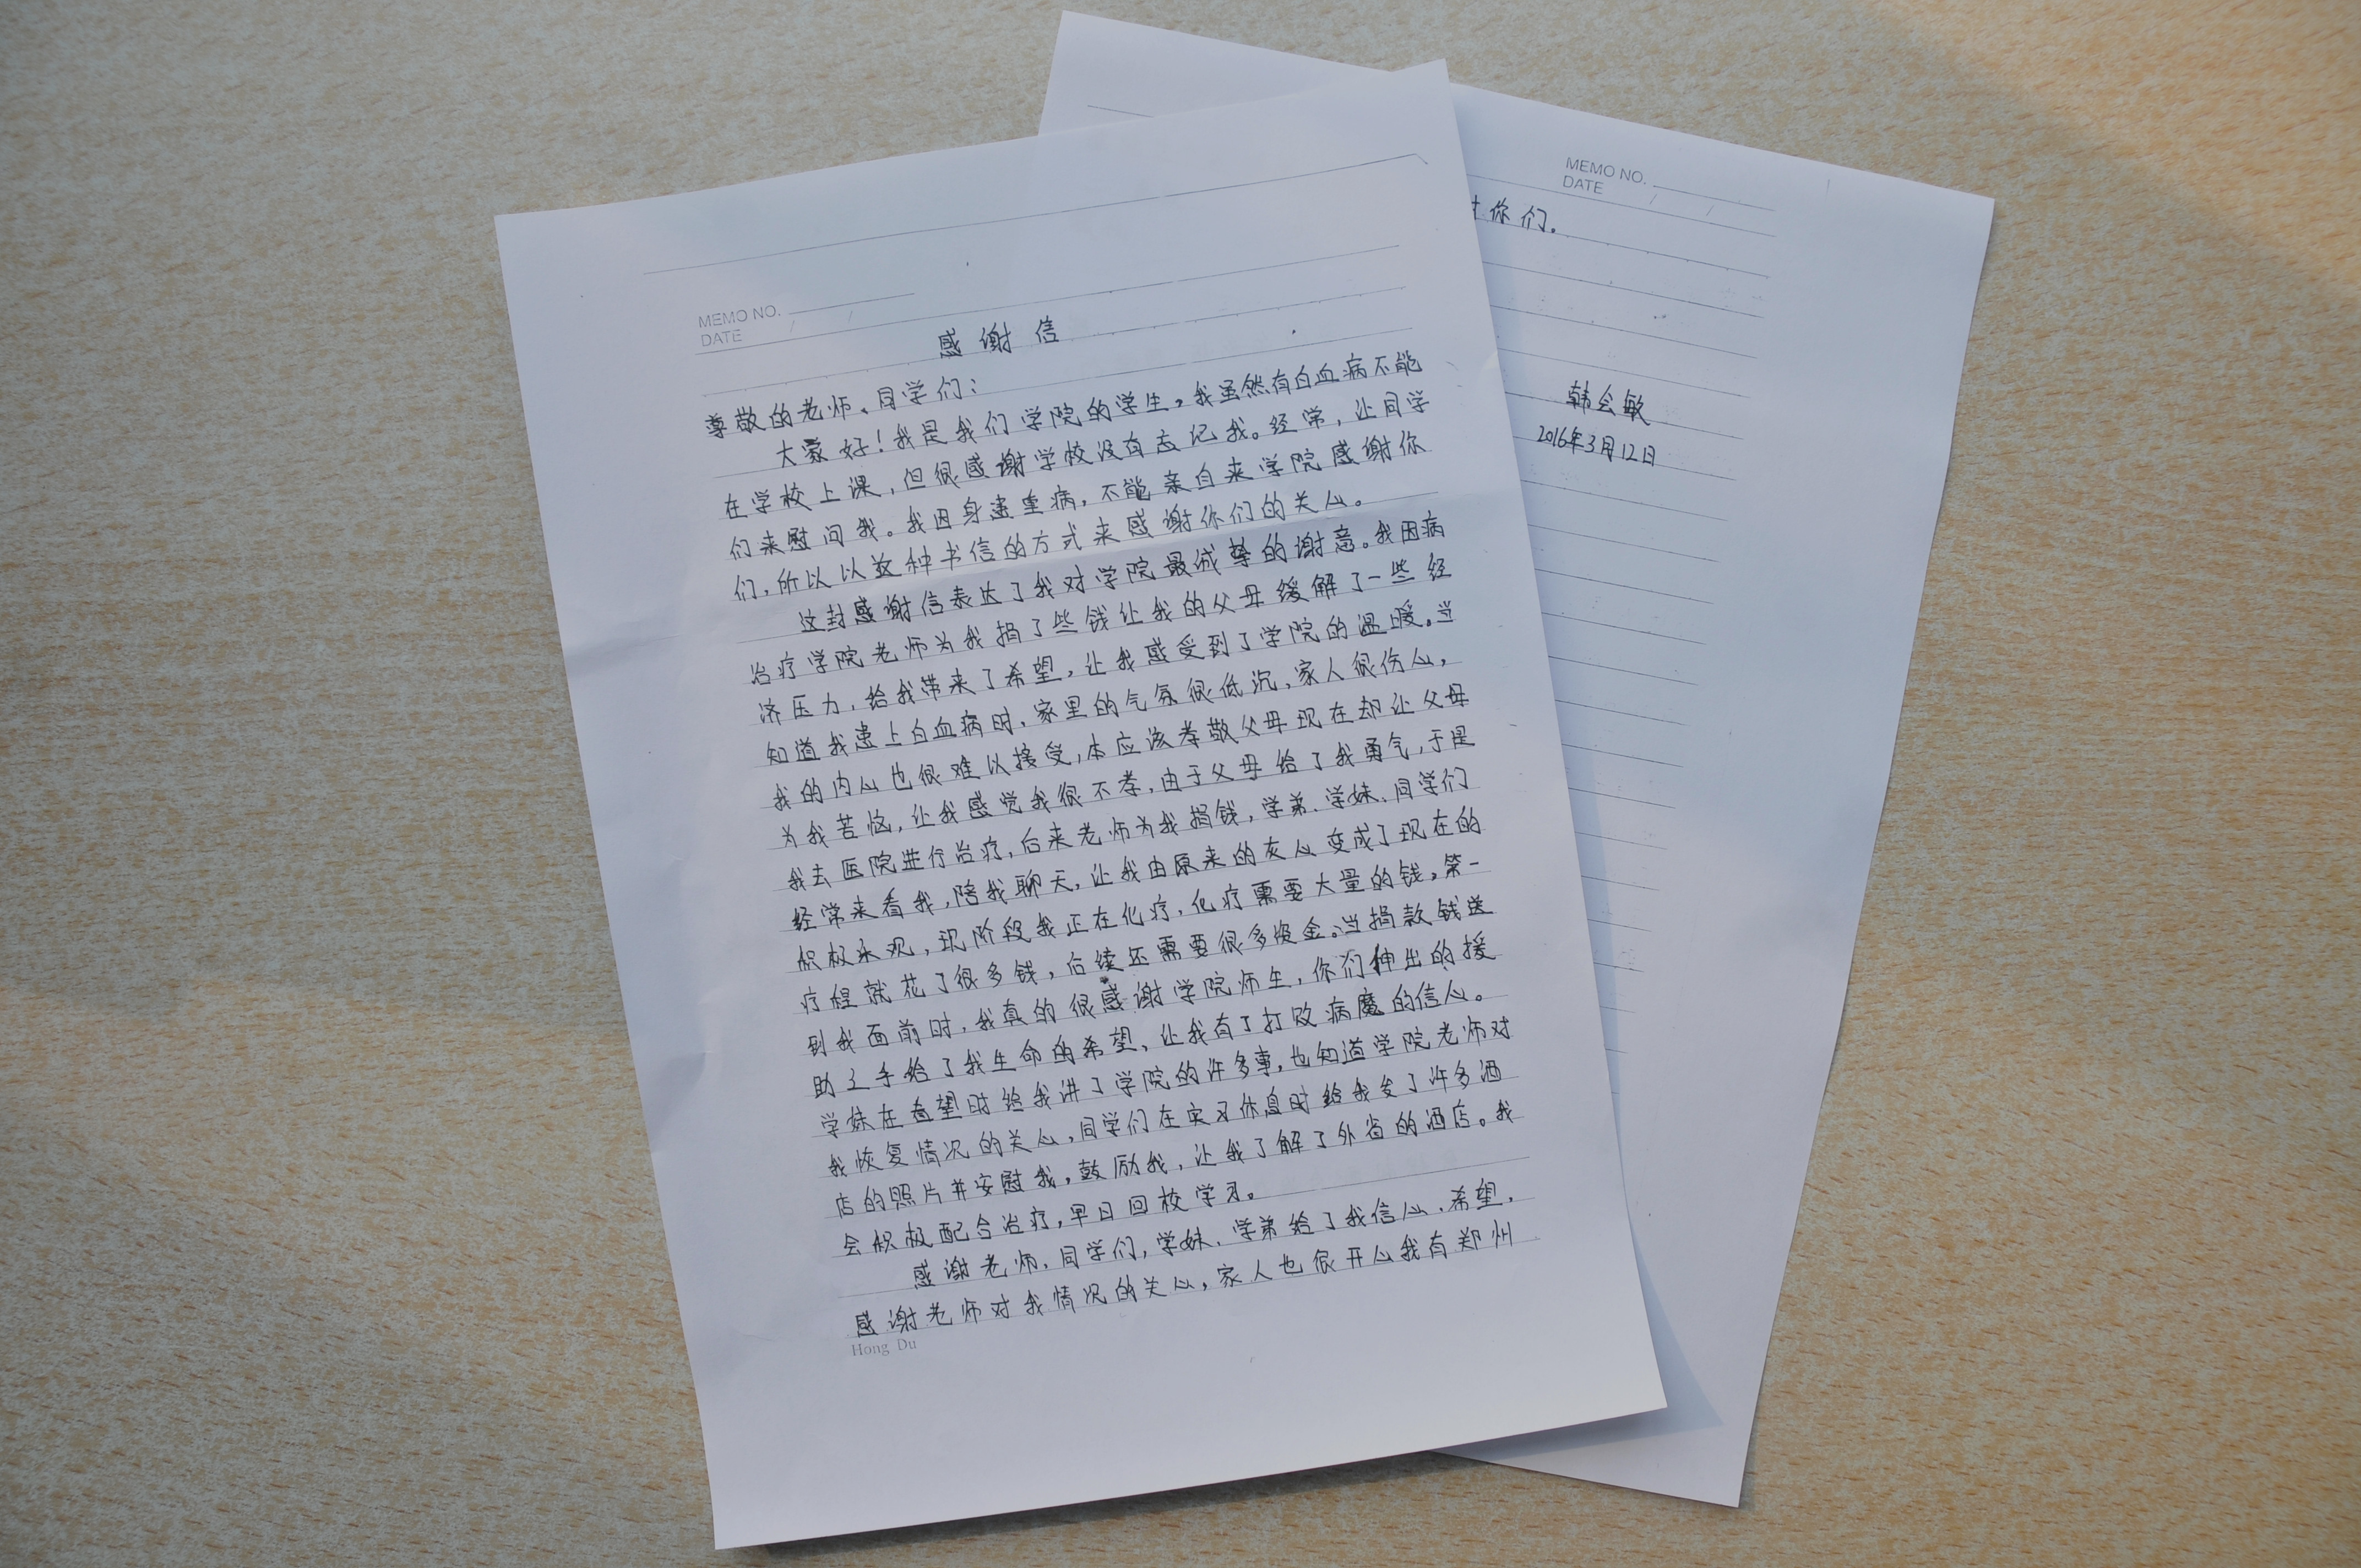 MEMO NO.
DATE / /
感谢信
尊敬的老师、同学们:
大家好!我是我们学院的学生,我虽然有白血病不能
在学校上课,但很感谢学校没有忘记我。经常,让同学
们来慰问我。我因身患重病,不能亲自来学院感谢你
们,所以以这种书信的方式来感谢你们的关心。
这封感谢信表达了我对学院最诚挚的谢意。我因病
治疗学院老师为我捐了些钱让我的父母缓解了一些经
济压力,给我带来了希望,让我感受到了学院的温暖。当
知道我患上白血病时,家里的气氛很低沉,家人很伤心,
我的内心也很难以接受,本应该孝敬父母现在却让父母
为我苦恼,让我感觉我很不孝,由于父母给了我勇气,于是
我去医院进行治疗,后来老师为我捐钱,学弟、学妹、同学们
经常来看我,陪我聊天,让我由原来的灰心变成了现在的
积极乐观,现阶段我正在化疗,化疗需要大量的钱,第一
疗程就花了很多钱,后续还需要很多资金。当捐款钱送
到我面前时,我真的很感谢学院师生,你们伸出的援
助之手给了我生命的希望、让我有了打败病魔的信心。
学妹在看望时给我讲了学院的许多事,也知道学院老师对
我恢复情况的关心,同学们在实习休息时给我发了许多酒
店的照片并安慰我,鼓励我,让我了解了外省的酒店。我
会积极配合治疗,早日回校学习。
感谢老师、同学们,学妹、学弟给了我信心、希望,
感谢老师对我情况的关心,家人也很开心我有郑州
Hong Du
MEMO NO.
DATE / /
你们。
韩会敏
2016年3月12日